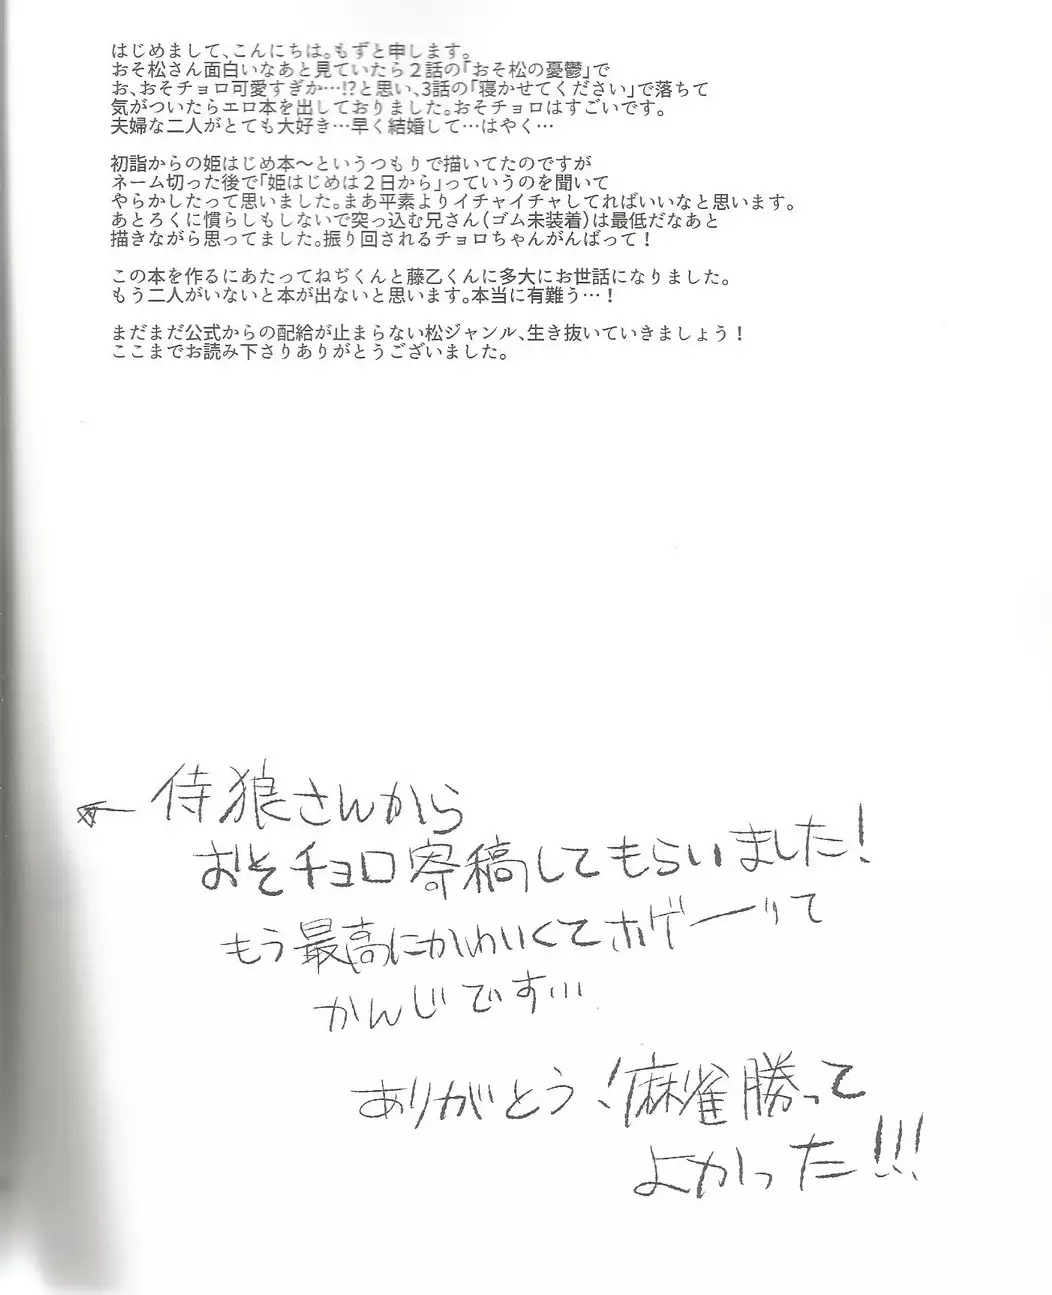 はじめまして、こんにちは。もずと申します。
おそ松さん面白いなあと見ていたら２話の「おそ松の憂鬱」で
お、おそチョロ可愛すぎか…!?と思い、3話の「寝かせてください」で落ちて
気がついたらエロ本を出しておりました。おそチョロはすごいです。
夫婦な二人がとても大好き…早く結婚して…はやく…
初詣からの姫はじめ本～というつもりで描いてたのですが
ネーム切った後で「姫はじめは２日から」っていうのを聞いて
やらかしたって思いました。まあ平素よりイチャイチャしてればいいなと思います。
あとろくに慣らしもしないで突っ込む兄さん（ゴム未装着）は最低だなあと
描きながら思ってました。振り回されるチョロちゃんがんばって！
この本を作るにあたってねぢくんと藤乙くんに多大にお世話になりました。
もう二人がいないと本が出ないと思います。本当に有難う…！
まだまだ公式からの配給が止まらない松ジャンル、生き抜いていきましょう！
ここまでお読み下さりありがとうございました。
← 侍狼さんから
おそチョロ寄稿してもらいました！
もう最高にかわいくてホゲーッて
かんじです…
ありがとう！麻雀勝って
よかった!!!